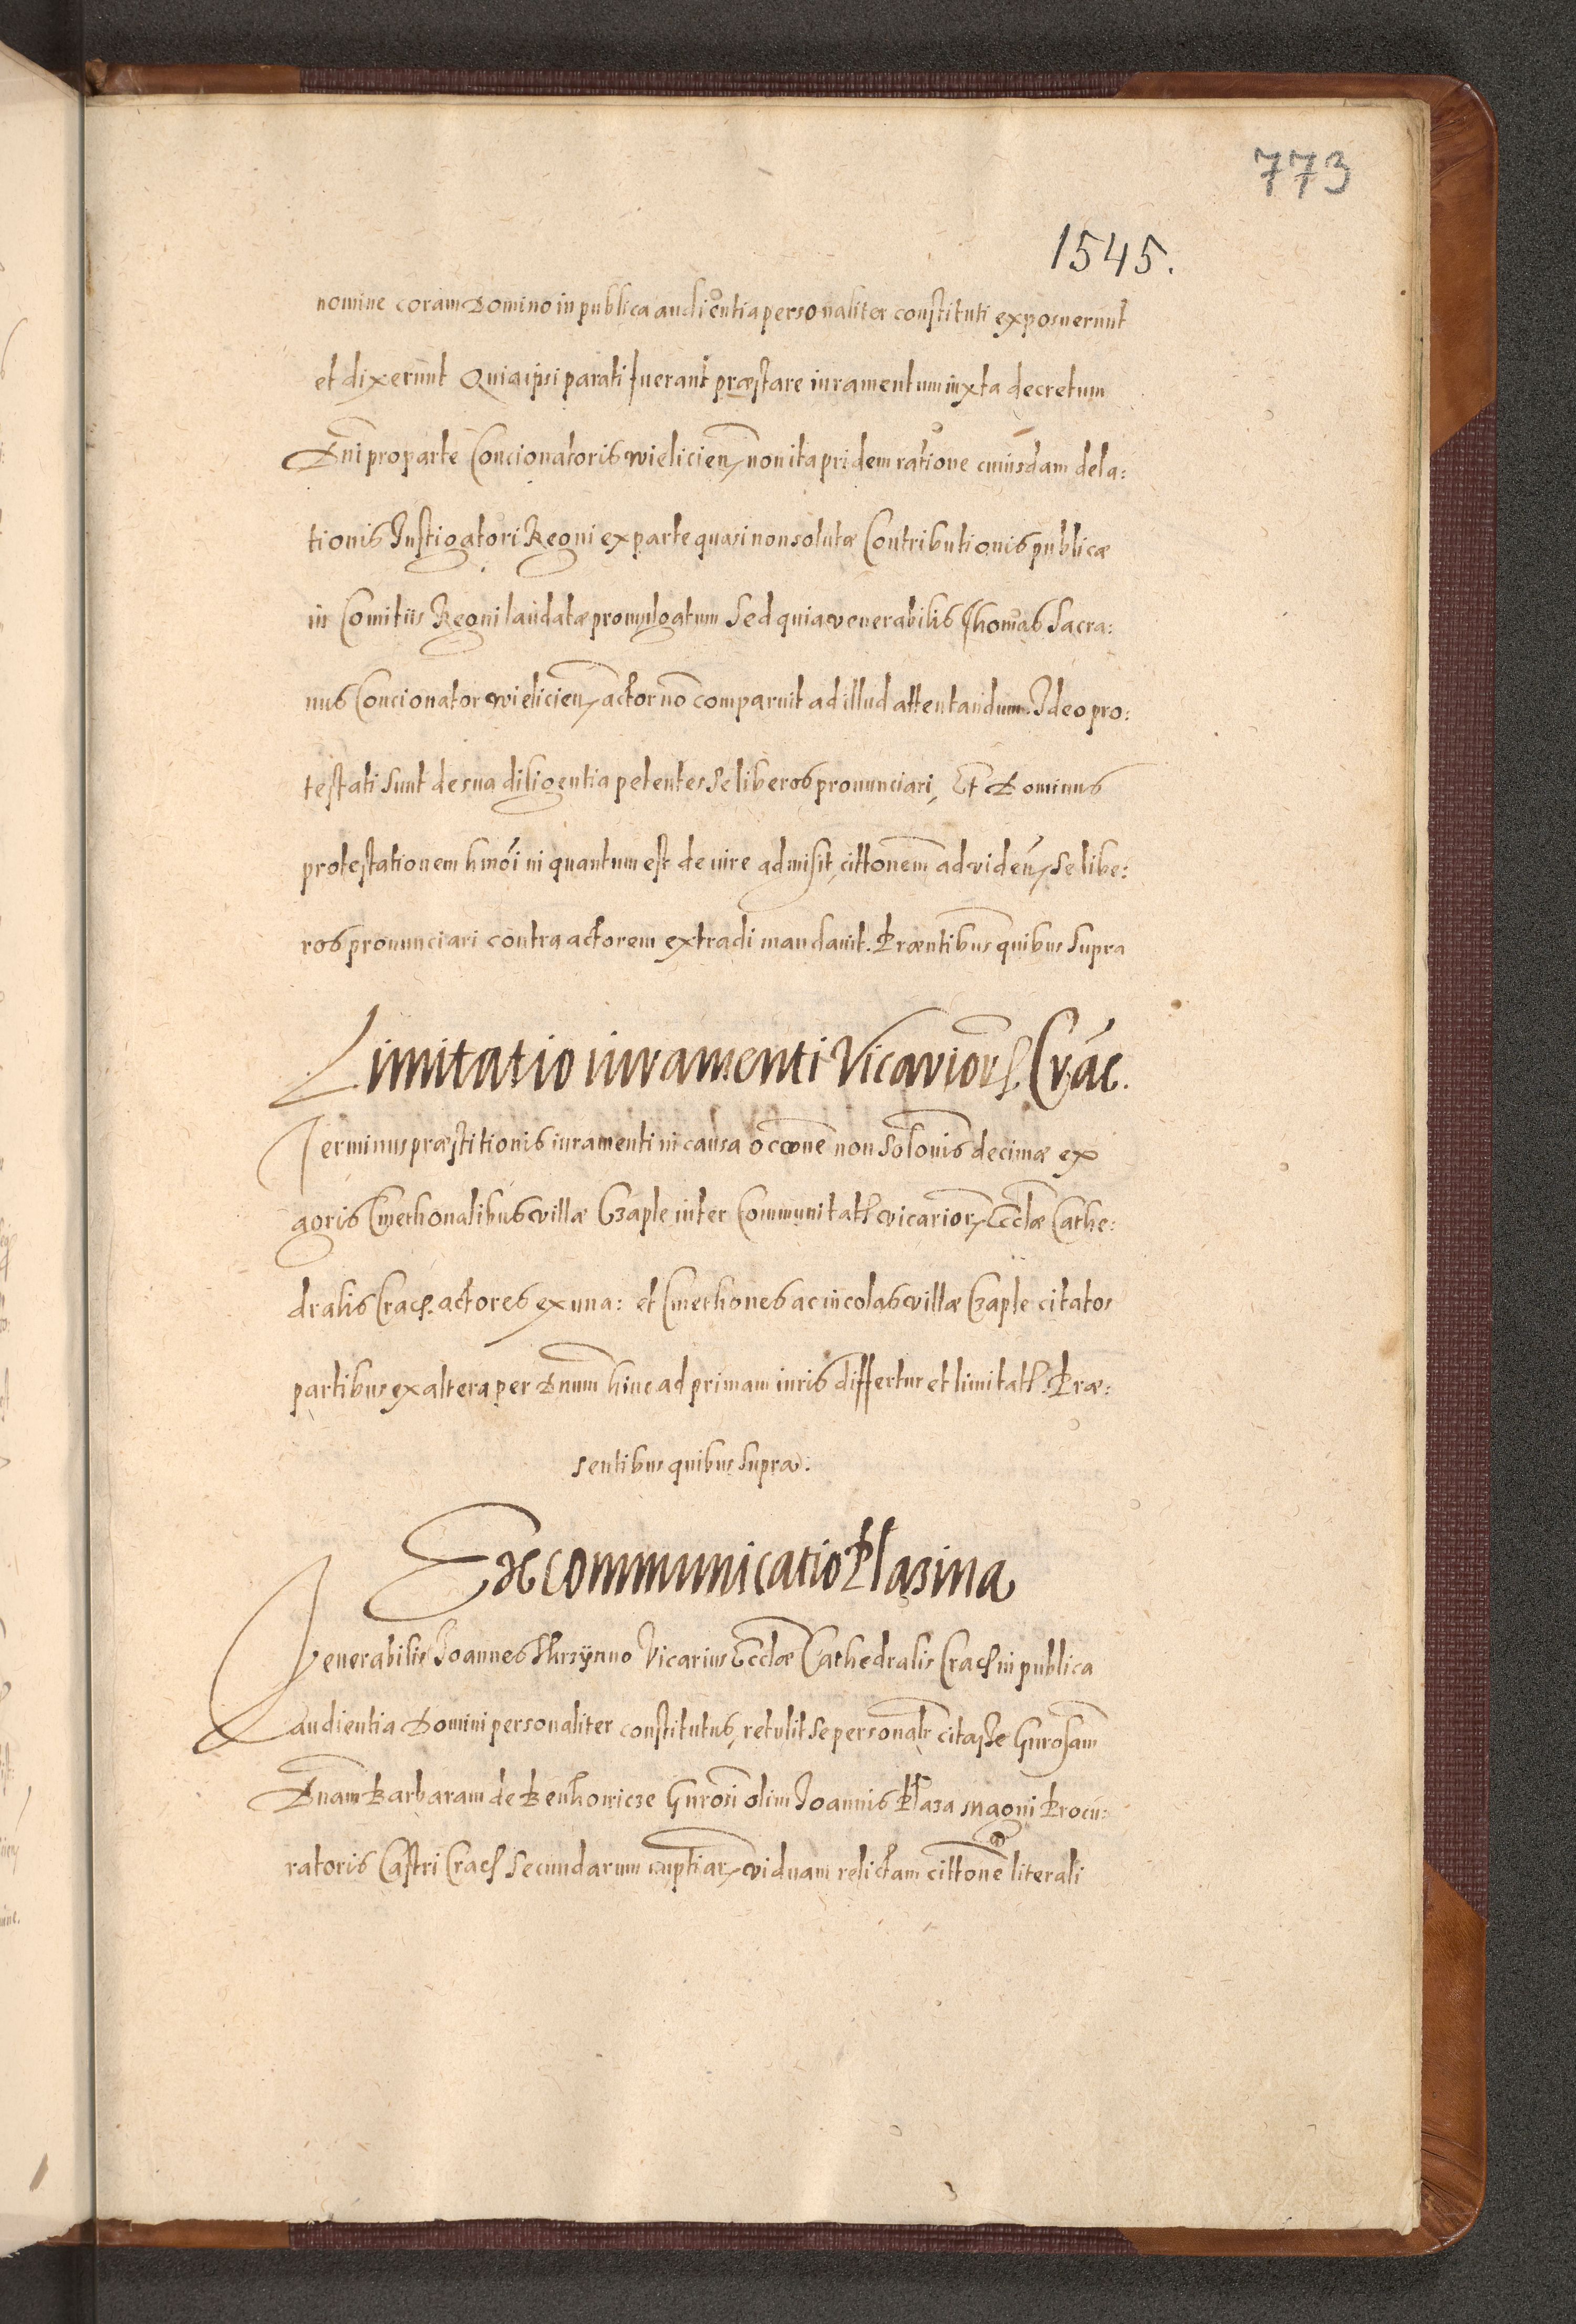 773
1545.
nomine coram Domino in publica audientia personaliter constituti exposuerunt
et dixerunt Quia ipsi parati fuerant præstare iuramentum iuxta decretum
Dni pro parte Concionatoris wielicien non ita pridem ratione cuiusdam dela:
tionis Instigatori Regni ex parte quasi non solutæ Contributionis publicæ
in Comitiis Regni laudatæ promulgatum Sed quia venerabilis Thomas Sacra:
nus Concionator wielicien actor nō comparuit ad illud attentandum. Ideo pro:
testati sunt de sua diligentia petentes se liberos pronunciari, Et Dominus
protestationem hmōi in quantum est de iure admisit, cittonem ad viden se libe:
ros pronunciari contra actorem extradi mandauit. Præntibus quibus supra
Limitatio iuramenti Vicarior Crac.
Terminus præstitionis iuramenti in causa occōne non Solonis decimæ ex
agris Cmethonalibus villæ Czaple inter Communitat vicarior Eccliæ Cathe:
dralis Crac. actores ex una: et Cmethones ac incolas villæ Czaple citatos
partibus ex altera per Dnum hinc ad primam iuris differtur et limitat. Præ:
sentibus quibus supra.
Excommunicatio Plazina
Venerabilis Joannes Skrzÿnno Vicarius Eccliæ Cathedralis Crac in publica
audientia Domini personaliter constitutus, retulit se personalr citasse Gnrosam
Dnam Barbaram de Gnrosi olim Joannis Plaza magni Procu:
ratoris Castri Crac secundarum nuptiar viduam relictam cittone literali